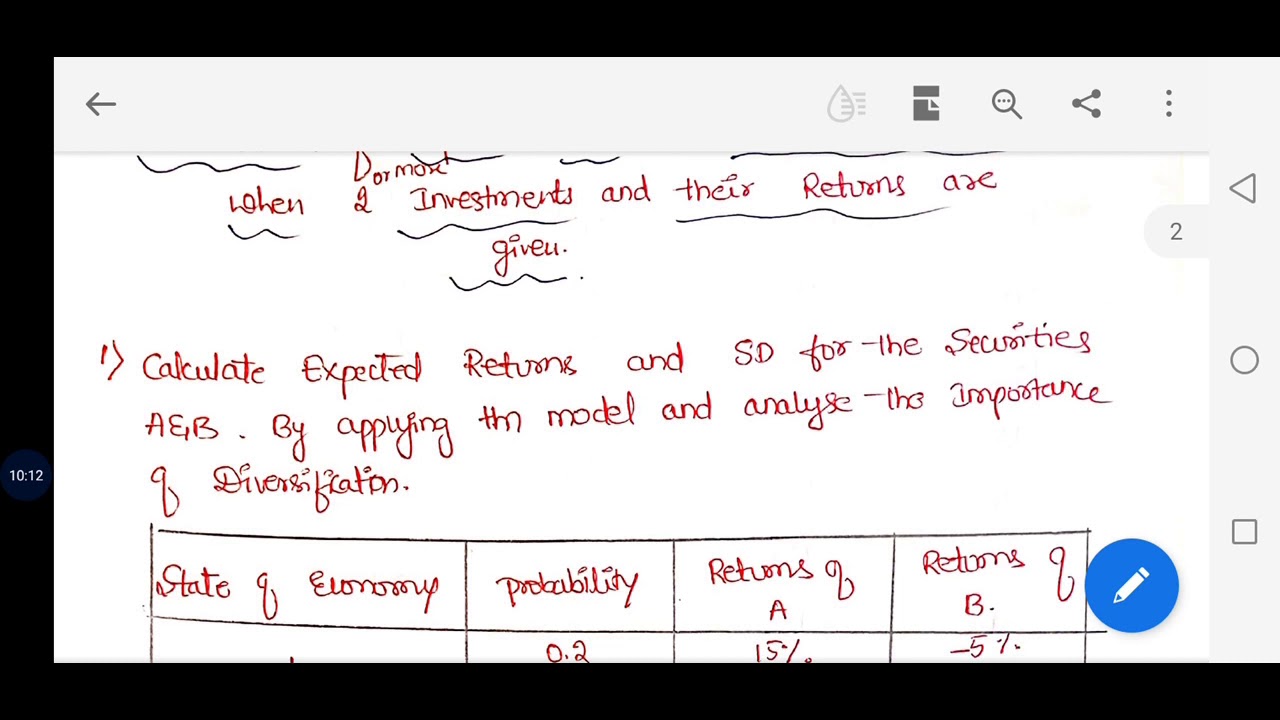 D or more
when 2 Investments and their Returns are
given.
2
1) Calculate Expected Returns and SD for the Securities
A & B. By applying thn model and analyse the Importance
of Diversification.
State of Economy Probability Returns of A Returns of B.
0.2 15%. -5%.
10:12